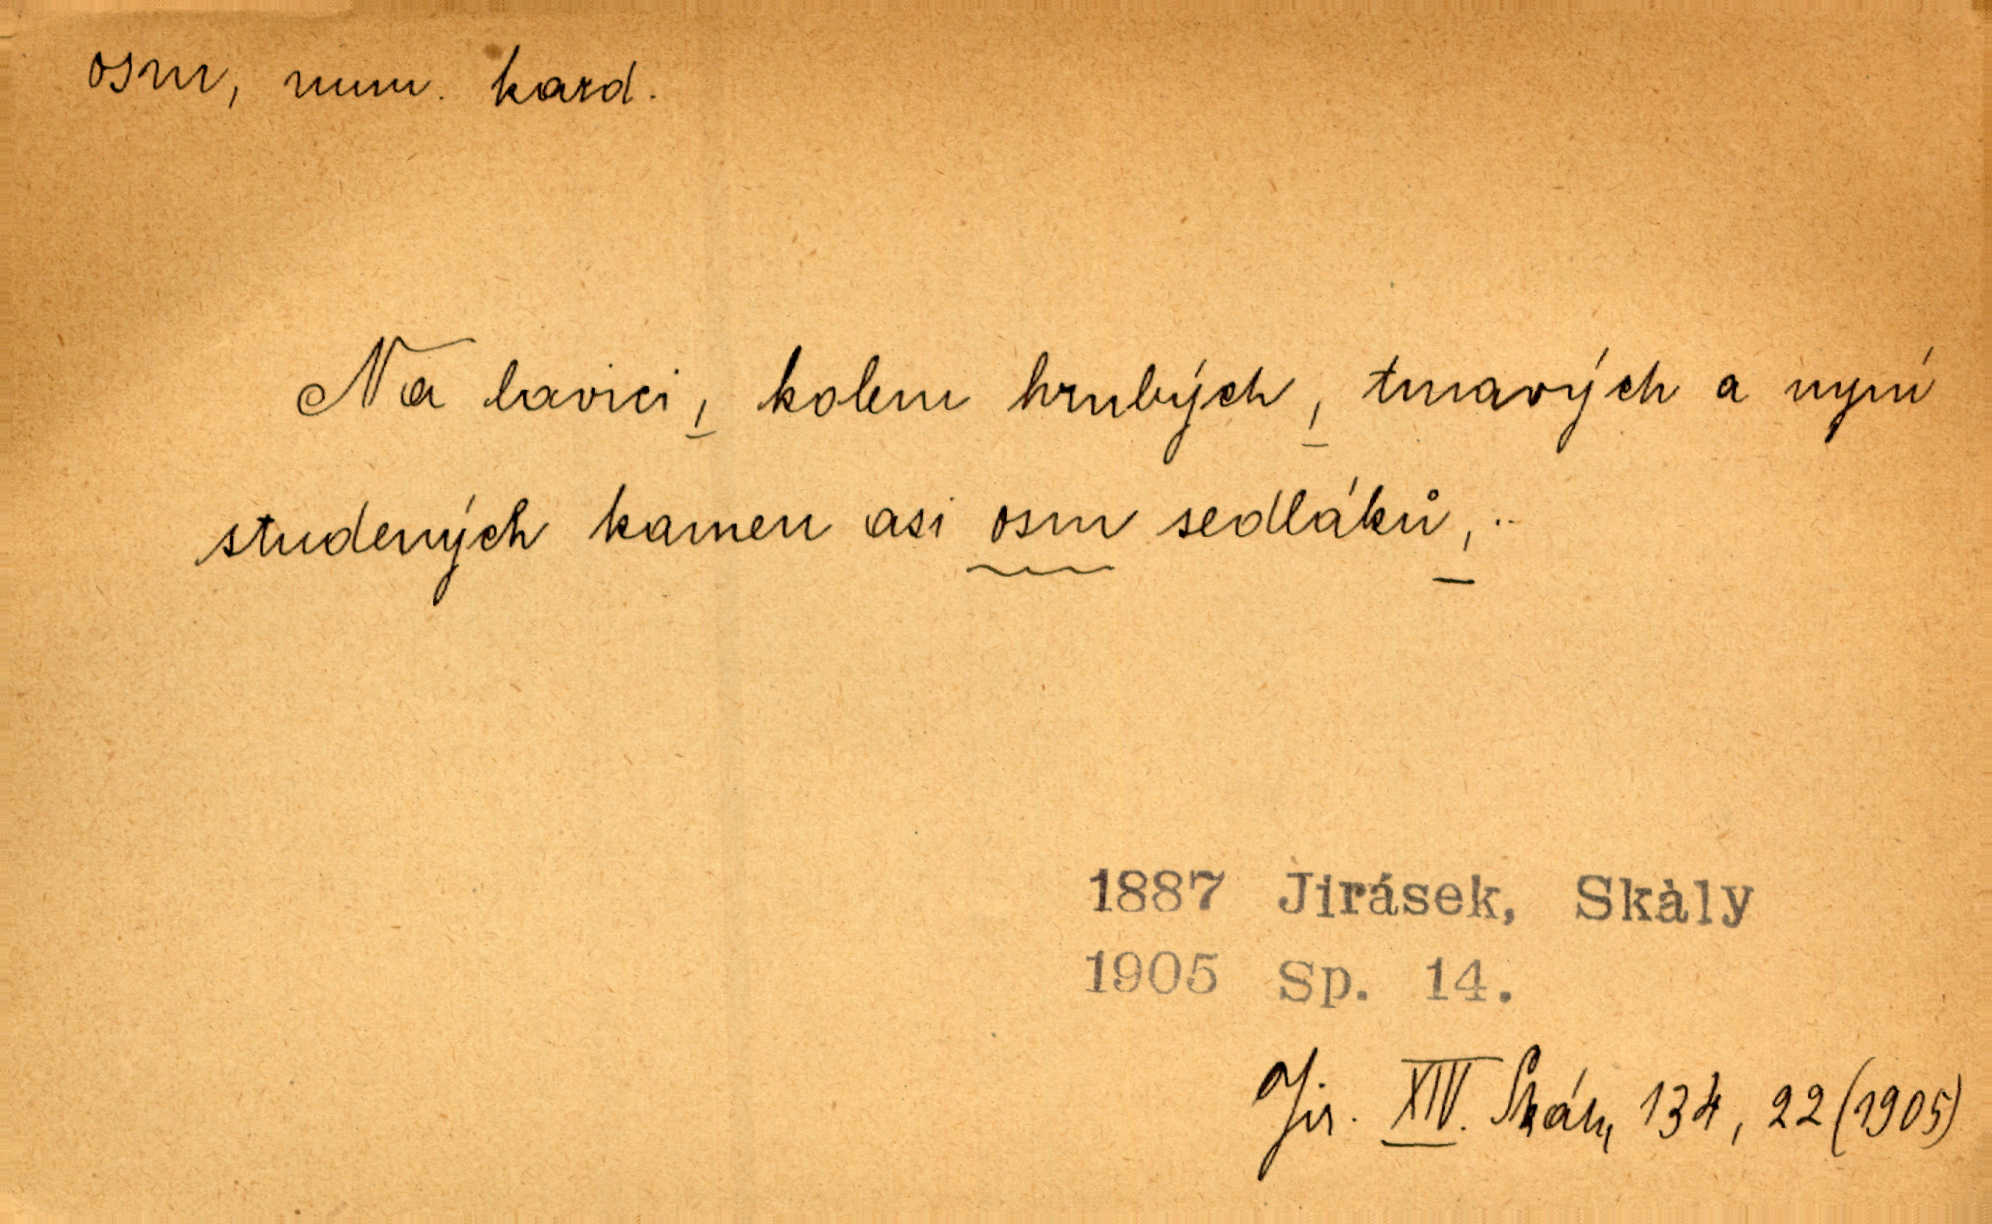 osm, num. kard.
Na lavici, kolem hrubých, tmavých a nyní
studených kamen asi osm sedláků, ..
1887 Jirásek, Skály
1905 Sp. 14.
Jir. XIV. Skály, 134, 22 (1905)